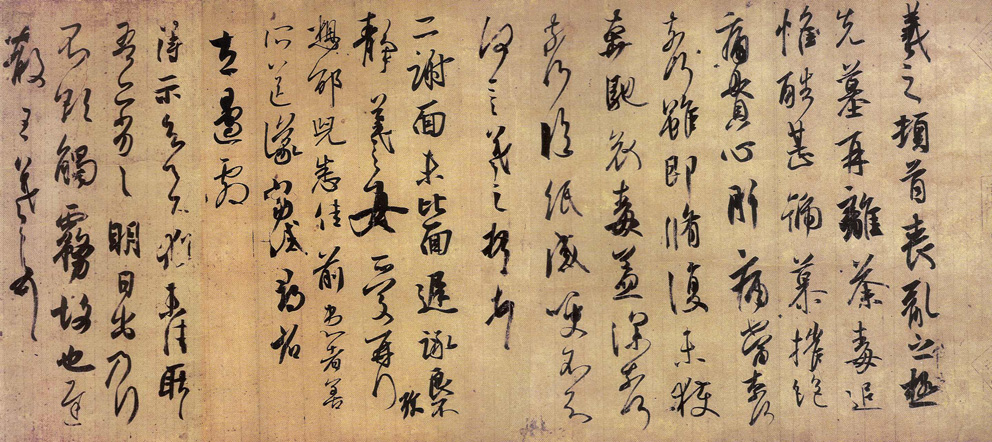 羲之頓首喪亂之極
先墓再離荼毒追
惟酷甚號慕摧絶
痛貫心肝痛當奈何
奈何雖即脩復未獲
奔馳哀毒益深奈何
奈何臨紙感哽不知
何言羲之頓首頓首
二謝面未比面遲詠良不
靜羲之女愛再拜
想邵兒悉佳前患者善
所送議當試尋省
左邊劇
得示知足下猶未佳耿
吾亦劣劣明日出乃行
不欲觸霧故也遲
散王羲之頓首